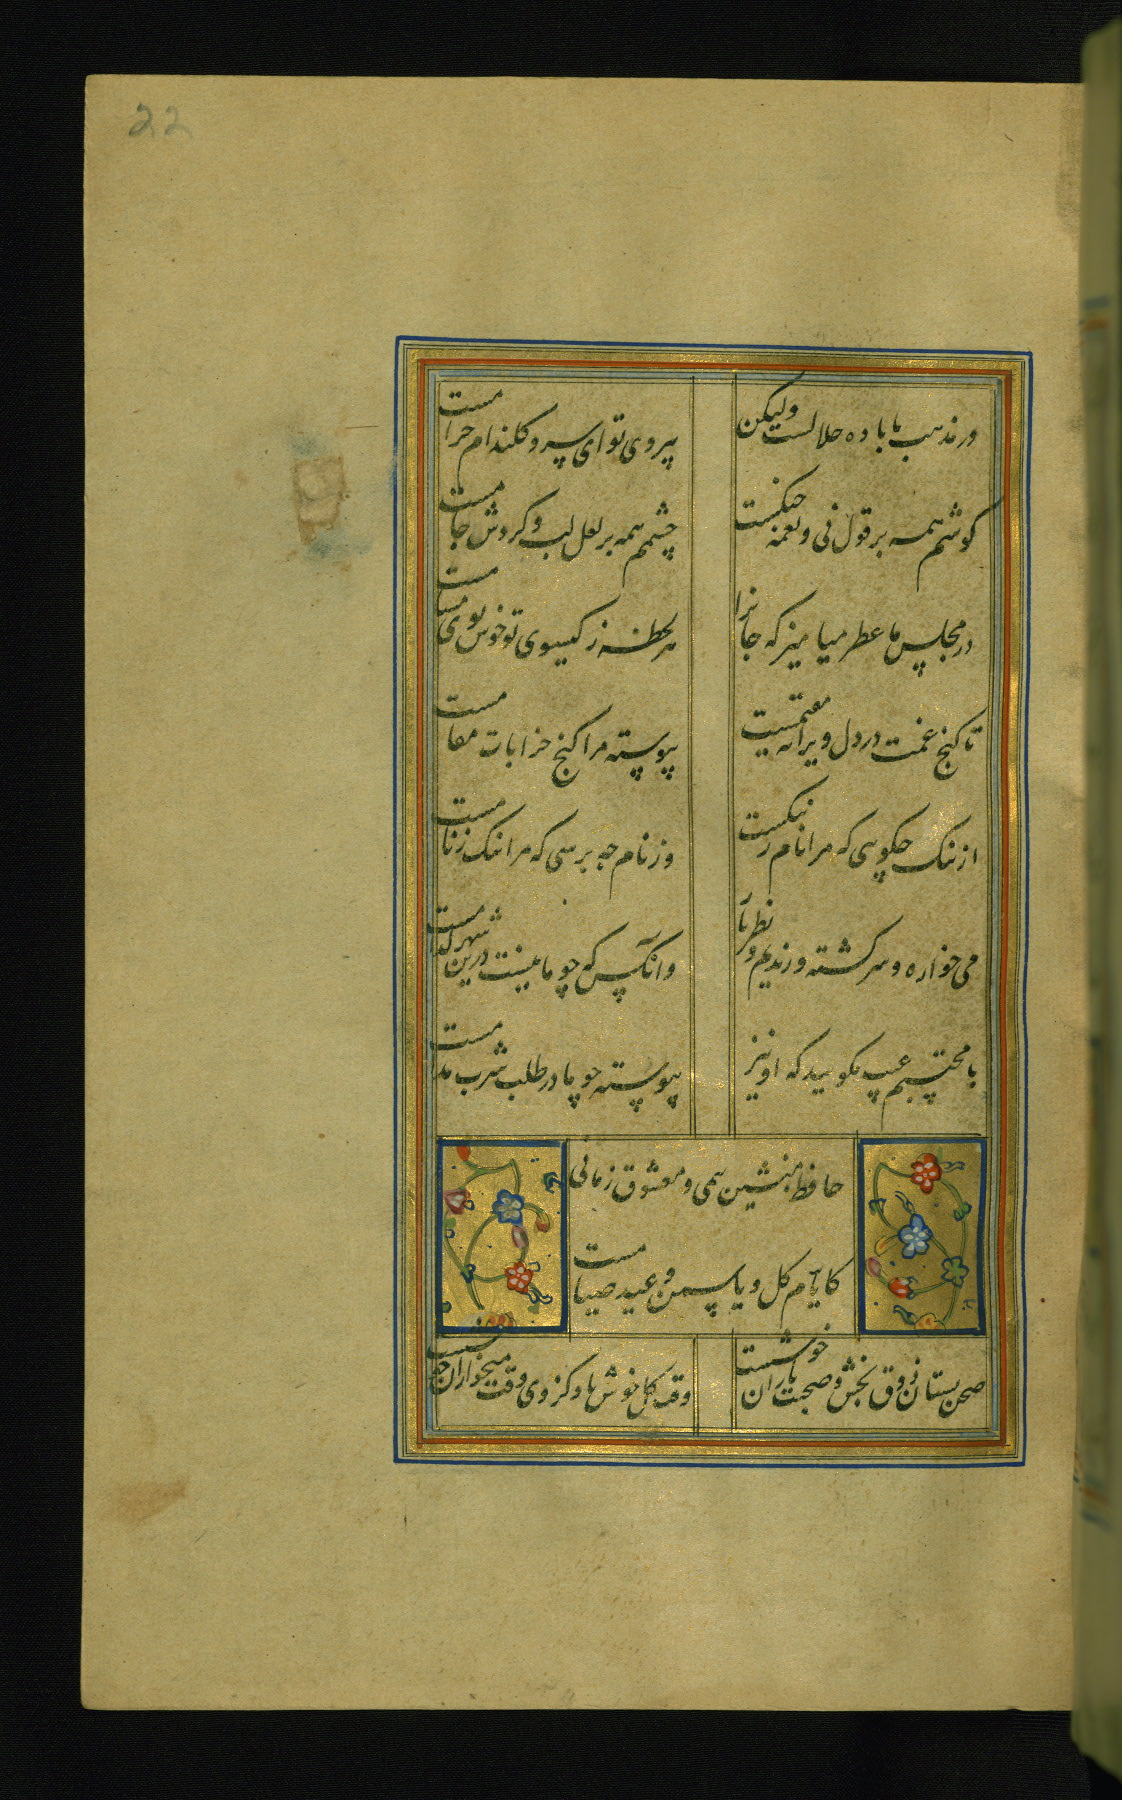 22
در مذهب ما باده حلالست ولیکن
بیروی تو ای سرو کلندام حرامست
کوشم همه بر قول نی و نغمه چنکست
چشمم همه بر لعل لب و کردش جامست
در مجلس ما عطر میامیز که جانرا
هر لحظه ز کیسوی تو خوش بوی مشامست
تا کنج غمت در دل ویرانه مقیمست
پیوسته مرا کنج خرابات مقامست
از ننک چکویی که مرا نام ز ننکست
وز نام چه پرسی که مرا ننک ز نامست
می خواره و سرکشته و رندیم و نظرباز
وانکس که چو ما نیست درین شهر کدامست
با محتسبم عیب مکویید که او نیز
پیوسته چو ما در طلب شرب مدامست
حافظ منشین بی می و معشوق زمانی
کایام کل و یاسمن و عید صیامست
صحن بستان ذوق بخش و صحبت یاران خوشست
وقت کل خوش باد کز وی وقت میخواران خوشست